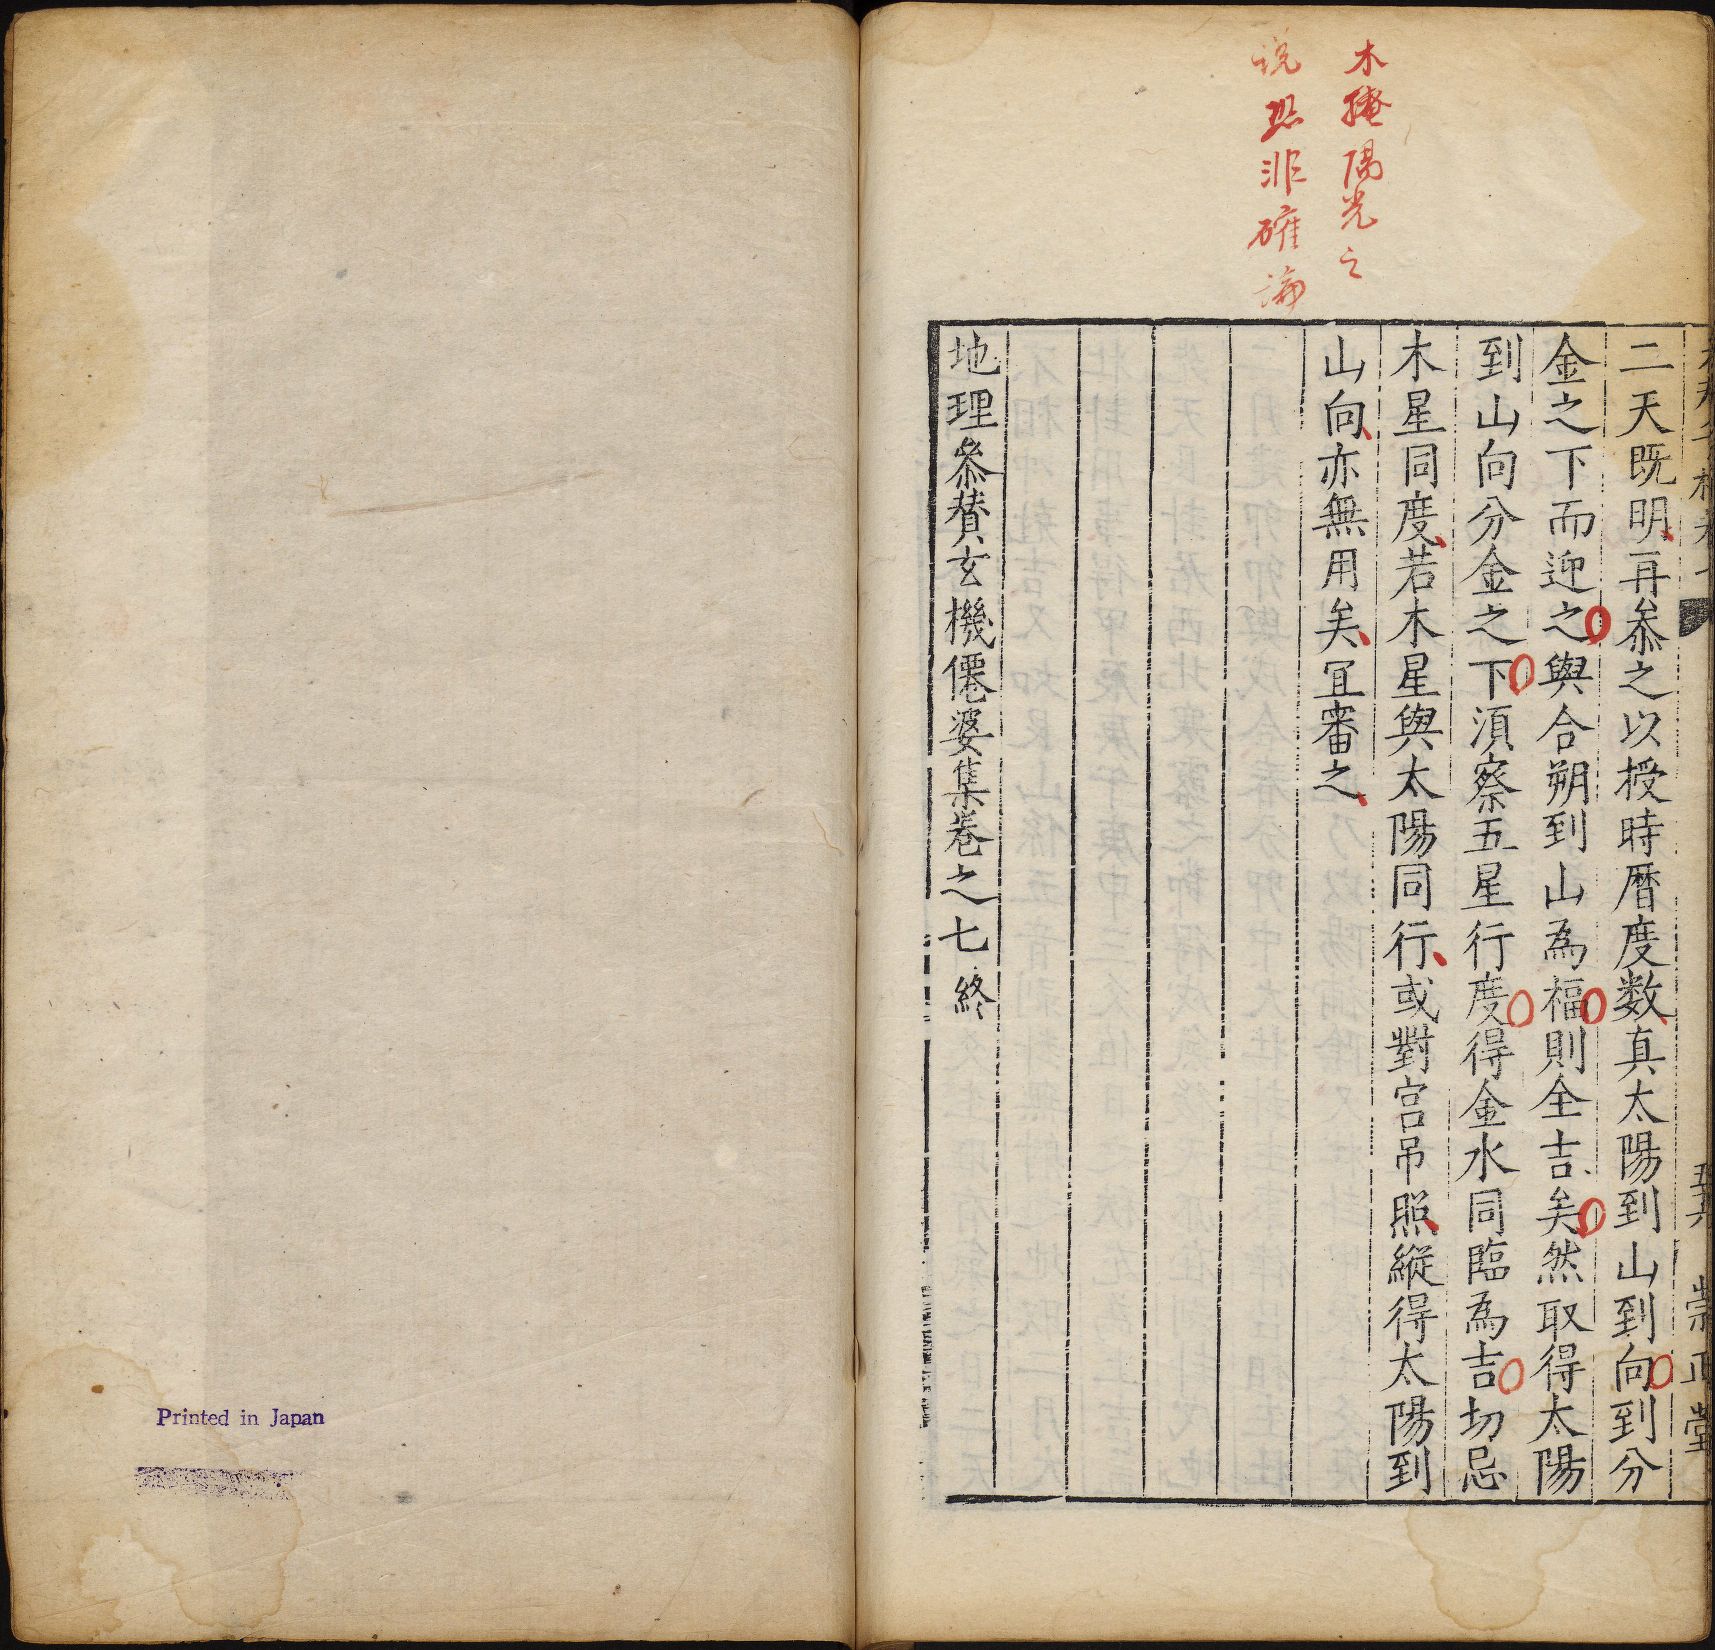 木掩陽光之
说恐非確論
二天既明再叅之以授時曆度数真太陽到山到向到分
金之下而迎之與合朔到山為福則全吉矣然取得太陽
到山向分金之下湏察五星行度得金水同臨為吉切忌
木星同度若木星與太陽同行或對宮吊照縱得太陽到
山向亦無用矣冝審之
地理叅賛玄機僊婆集卷之七終
崇正堂
Printed in Japan